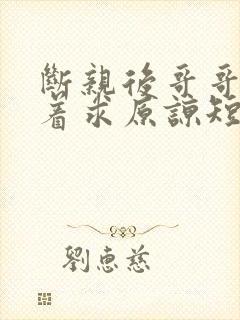 斷親後哥哥
着求原諒短
劉惠慈